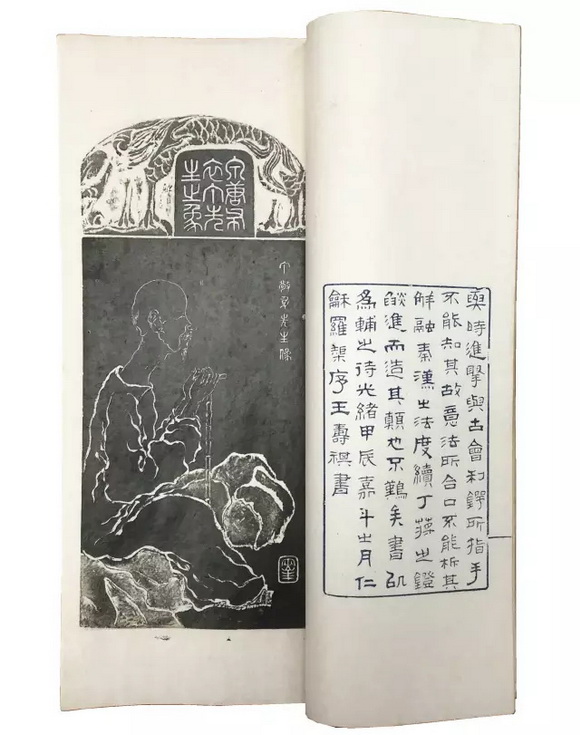 時進擊與古會利鍔所指手
不能知其故意法所合口不能析其
解融秦漢之法度續丁蔣之鐙
燄進而造其顛也不難矣書㠯
為輔之待光緒甲辰嘉平之月仁
龢羅榘序王壽祺書
泉唐
先
生之象
丁敬身先生像